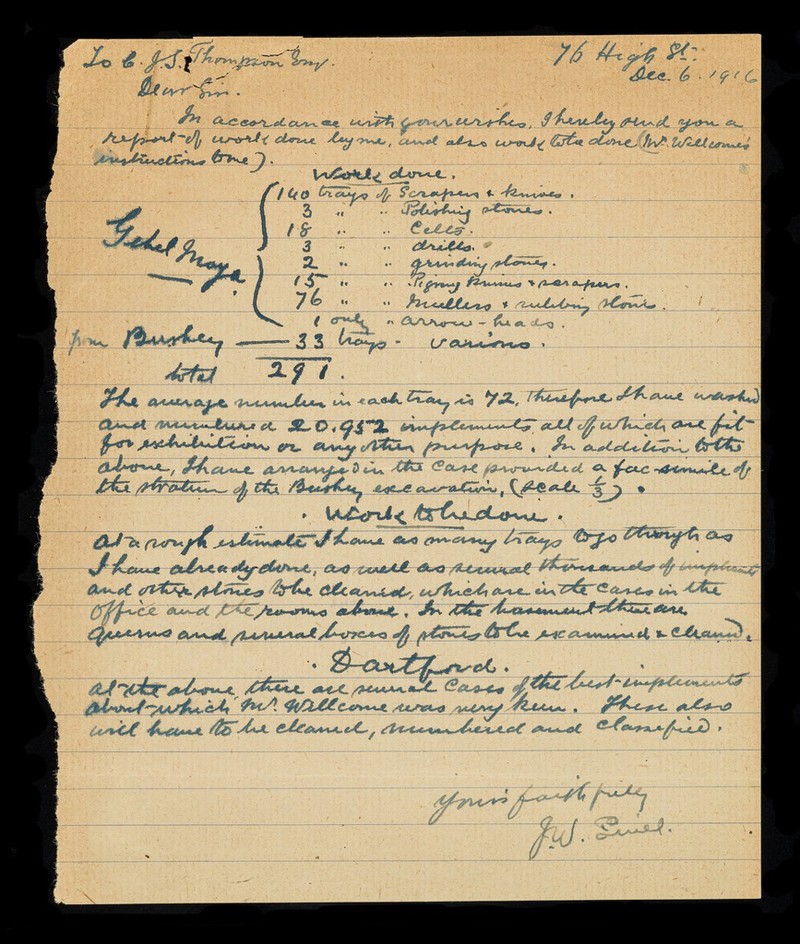 To C. J. S. Thompson Esq.
76 High St.
Dec. 6. 1916
Dear Sir.
In accordance with your wishes, I hereby send you a
report of work done by me, and also work to be done (Mr. Wellcome's
instructions to me).
Work done.
140 trays of Scrapers & knives.
3 " " Polishing stones.
18 " " Celts.
3 " " drills.
Gebel Moya
2 " " grinding stones.
15 " " Pigmy knives & scrapers.
76 " " Mullers & rubbing stones.
1 only " arrow-heads.
from Bushey — 33 trays - various.
total 291.
The average number in each tray is 72, therefore I have washed
and numbered 20.952 implements all of which are fit
for exhibition or any other purpose. In addition to the
above, I have arranged in the case provided a fac-simile of
the stratum of the Bushey excavation, (scale 1/3).
. Work to be done.
At a rough estimate I have as many trays to go through as
I have already done, as well as several thousands of implements
and other stones to be cleaned, which are in the cases in the
office and the rooms above. In the basement there are
querns and several boxes of stones to be examined & cleaned.
. Dartford.
At the above, there are several cases of the best implements
about which Mr. Wellcome was very keen. These also
will have to be cleaned, numbered and classified.
Yours faithfully
J. W.